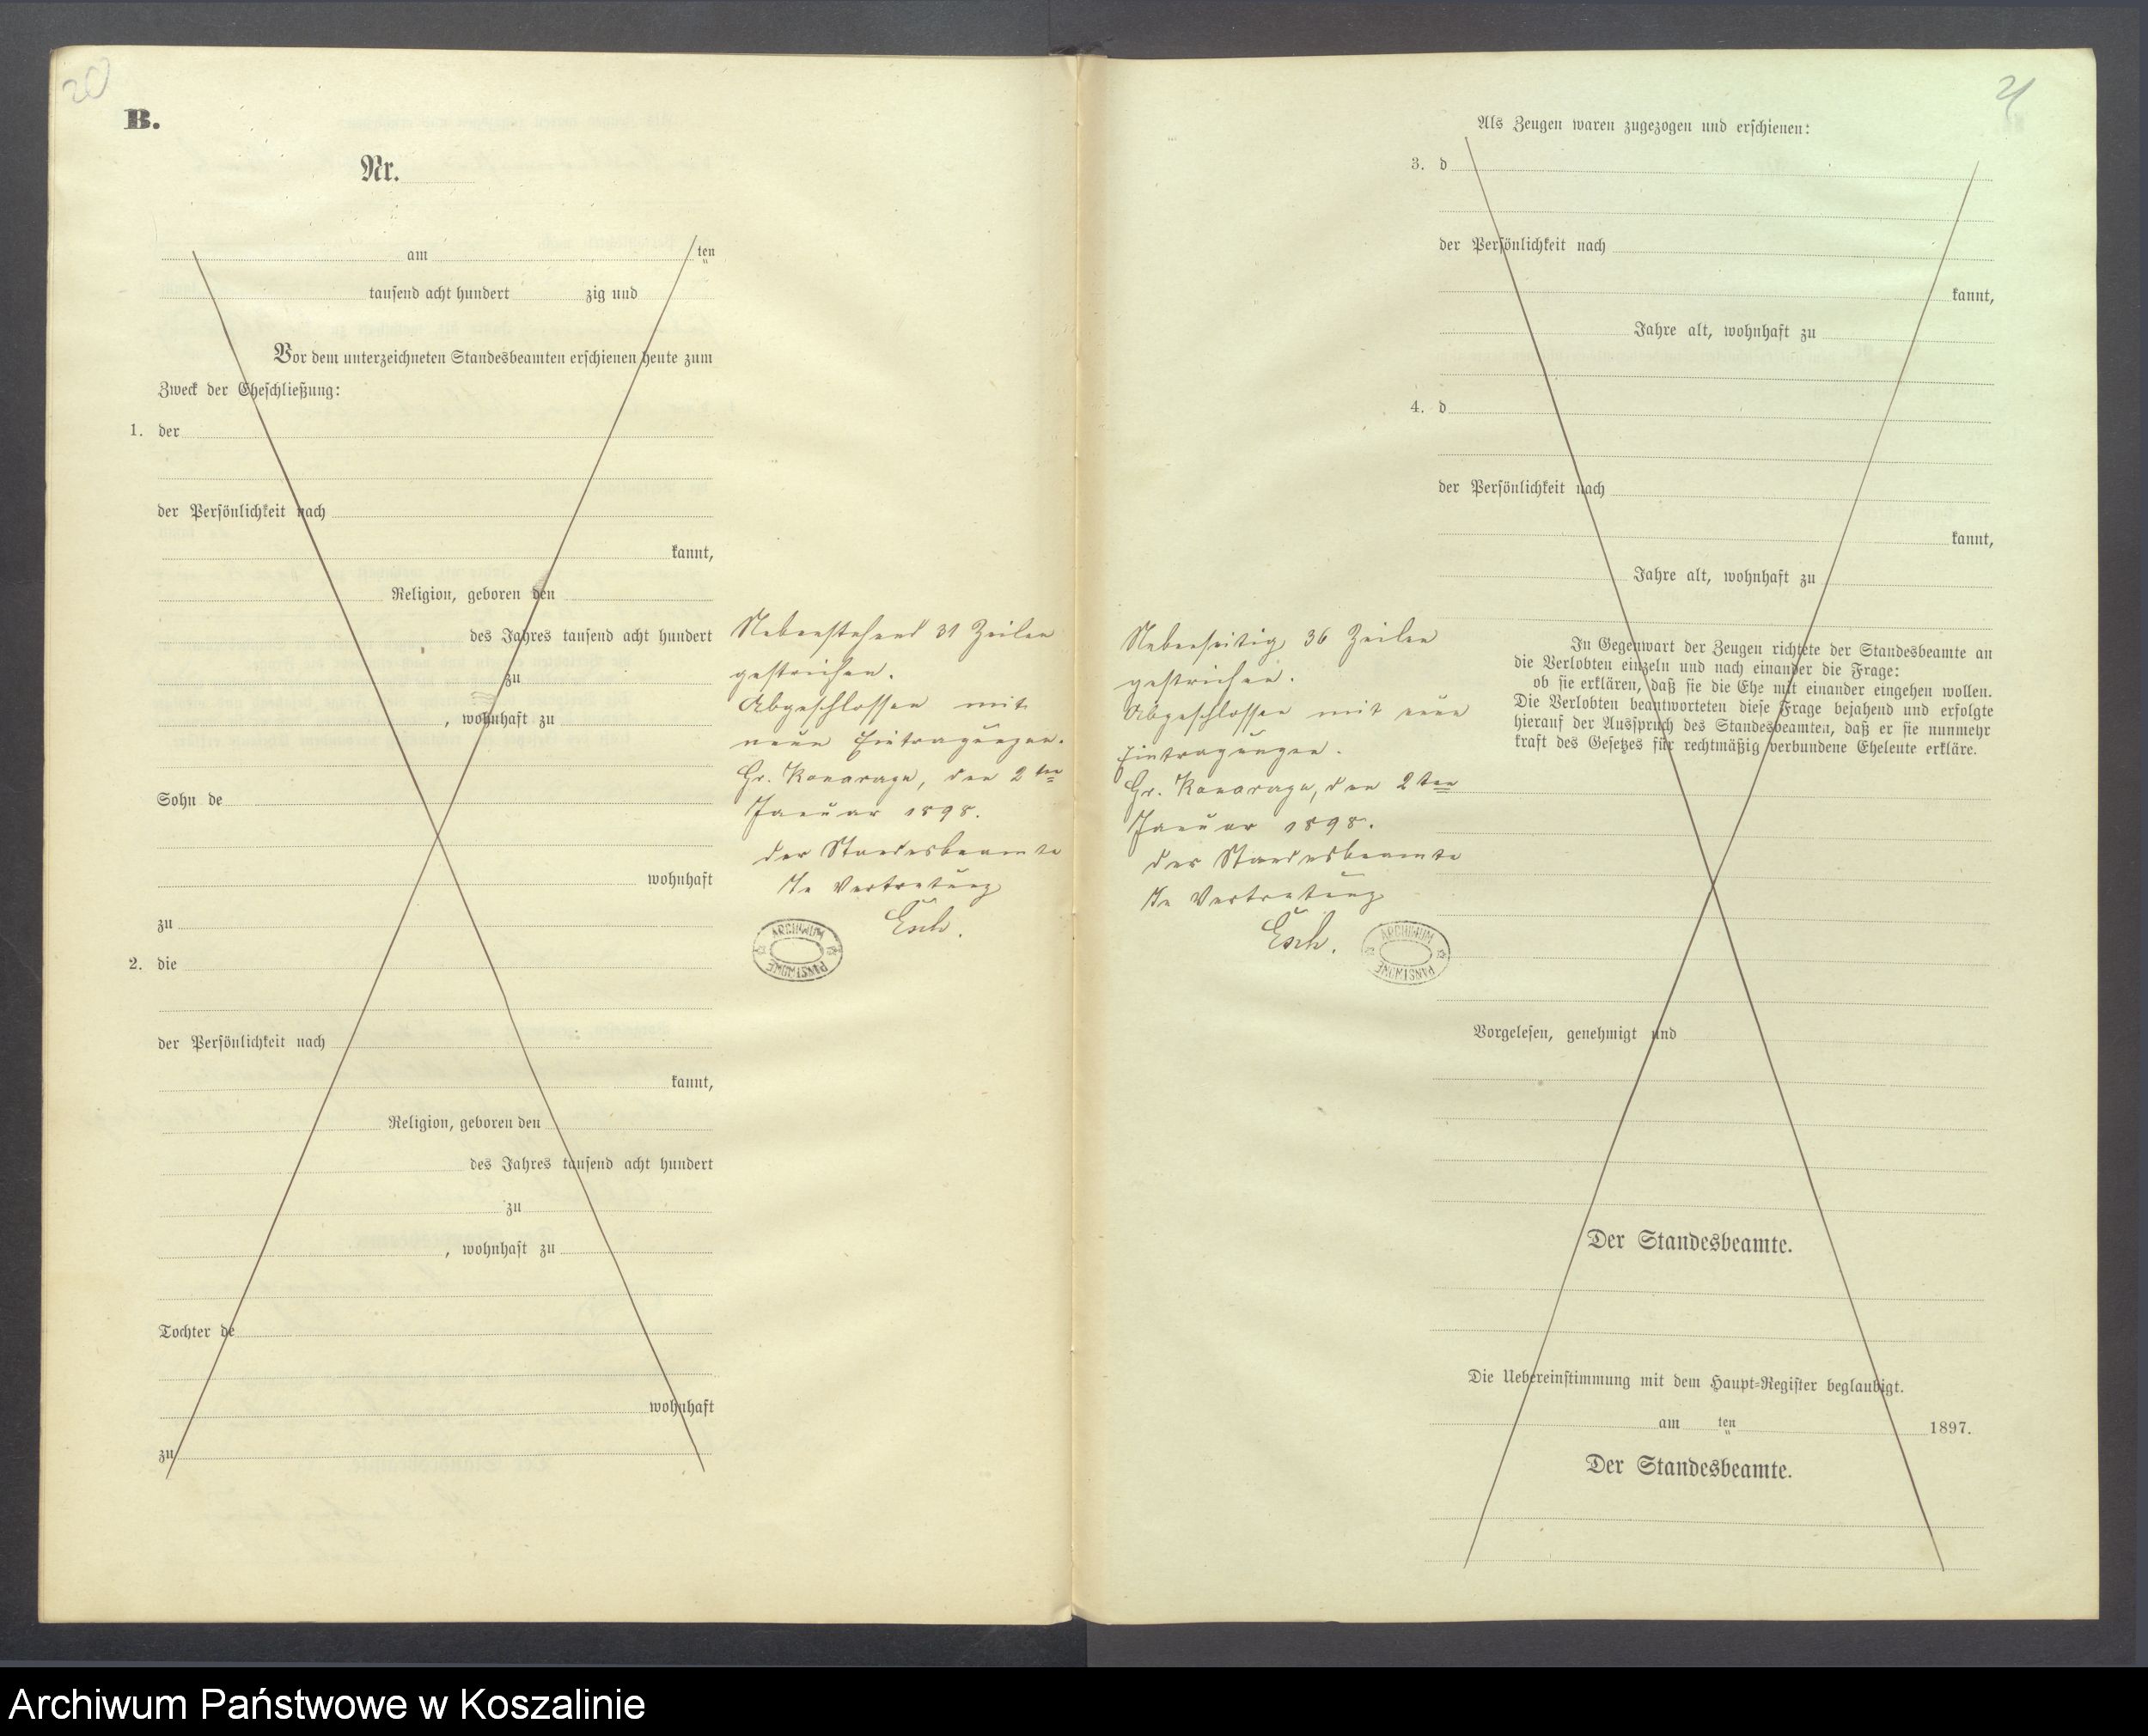 20
B.
Nr.
am ten
tausend acht hundert zig und
Vor dem unterzeichneten Standesbeamten erschienen heute zum
Zweck der Eheschließung:
1. der
der Persönlichkeit nach
kannt,
Religion, geboren den
des Jahres tausend acht hundert
zu
, wohnhaft zu
Sohn de
wohnhaft
zu
2. die
der Persönlichkeit nach
kannt,
Religion, geboren den
des Jahres tausend acht hundert
zu
, wohnhaft zu
Tochter de
wohnhaft
zu
Nebenstehend 31 Zeilen
gestrichen.
Abgeschlossen mit
neun Eintragungen.
Gr. Konarzyn, den 2ten
Januar 1898.
der Standesbeamte
In Vertretung
Esch.
ARCHIWUM
PAŃSTWOWE
21
Als Zeugen waren zugezogen und erschienen:
3. d
der Persönlichkeit nach
kannt,
Jahre alt, wohnhaft zu
4. d
der Persönlichkeit nach
kannt,
Jahre alt, wohnhaft zu
In Gegenwart der Zeugen richtete der Standesbeamte an
die Verlobten einzeln und nach einander die Frage:
ob sie erklären, daß sie die Ehe mit einander eingehen wollen.
Die Verlobten beantworteten diese Frage bejahend und erfolgte
hierauf der Ausspruch des Standesbeamten, daß er sie nunmehr
kraft des Gesetzes für rechtmäßig verbundene Eheleute erkläre.
Nebenseitig 36 Zeilen
gestrichen.
Abgeschlossen mit neun
Eintragungen.
Gr. Konarzyn, den 2ten
Januar 1898.
der Standesbeamte
In Vertretung
Esch.
ARCHIWUM
PAŃSTWOWE
Vorgelesen, genehmigt und
Der Standesbeamte.
Die Uebereinstimmung mit dem Haupt-Register beglaubigt.
am ten 1897.
Der Standesbeamte.
Archiwum Państwowe w Koszalinie